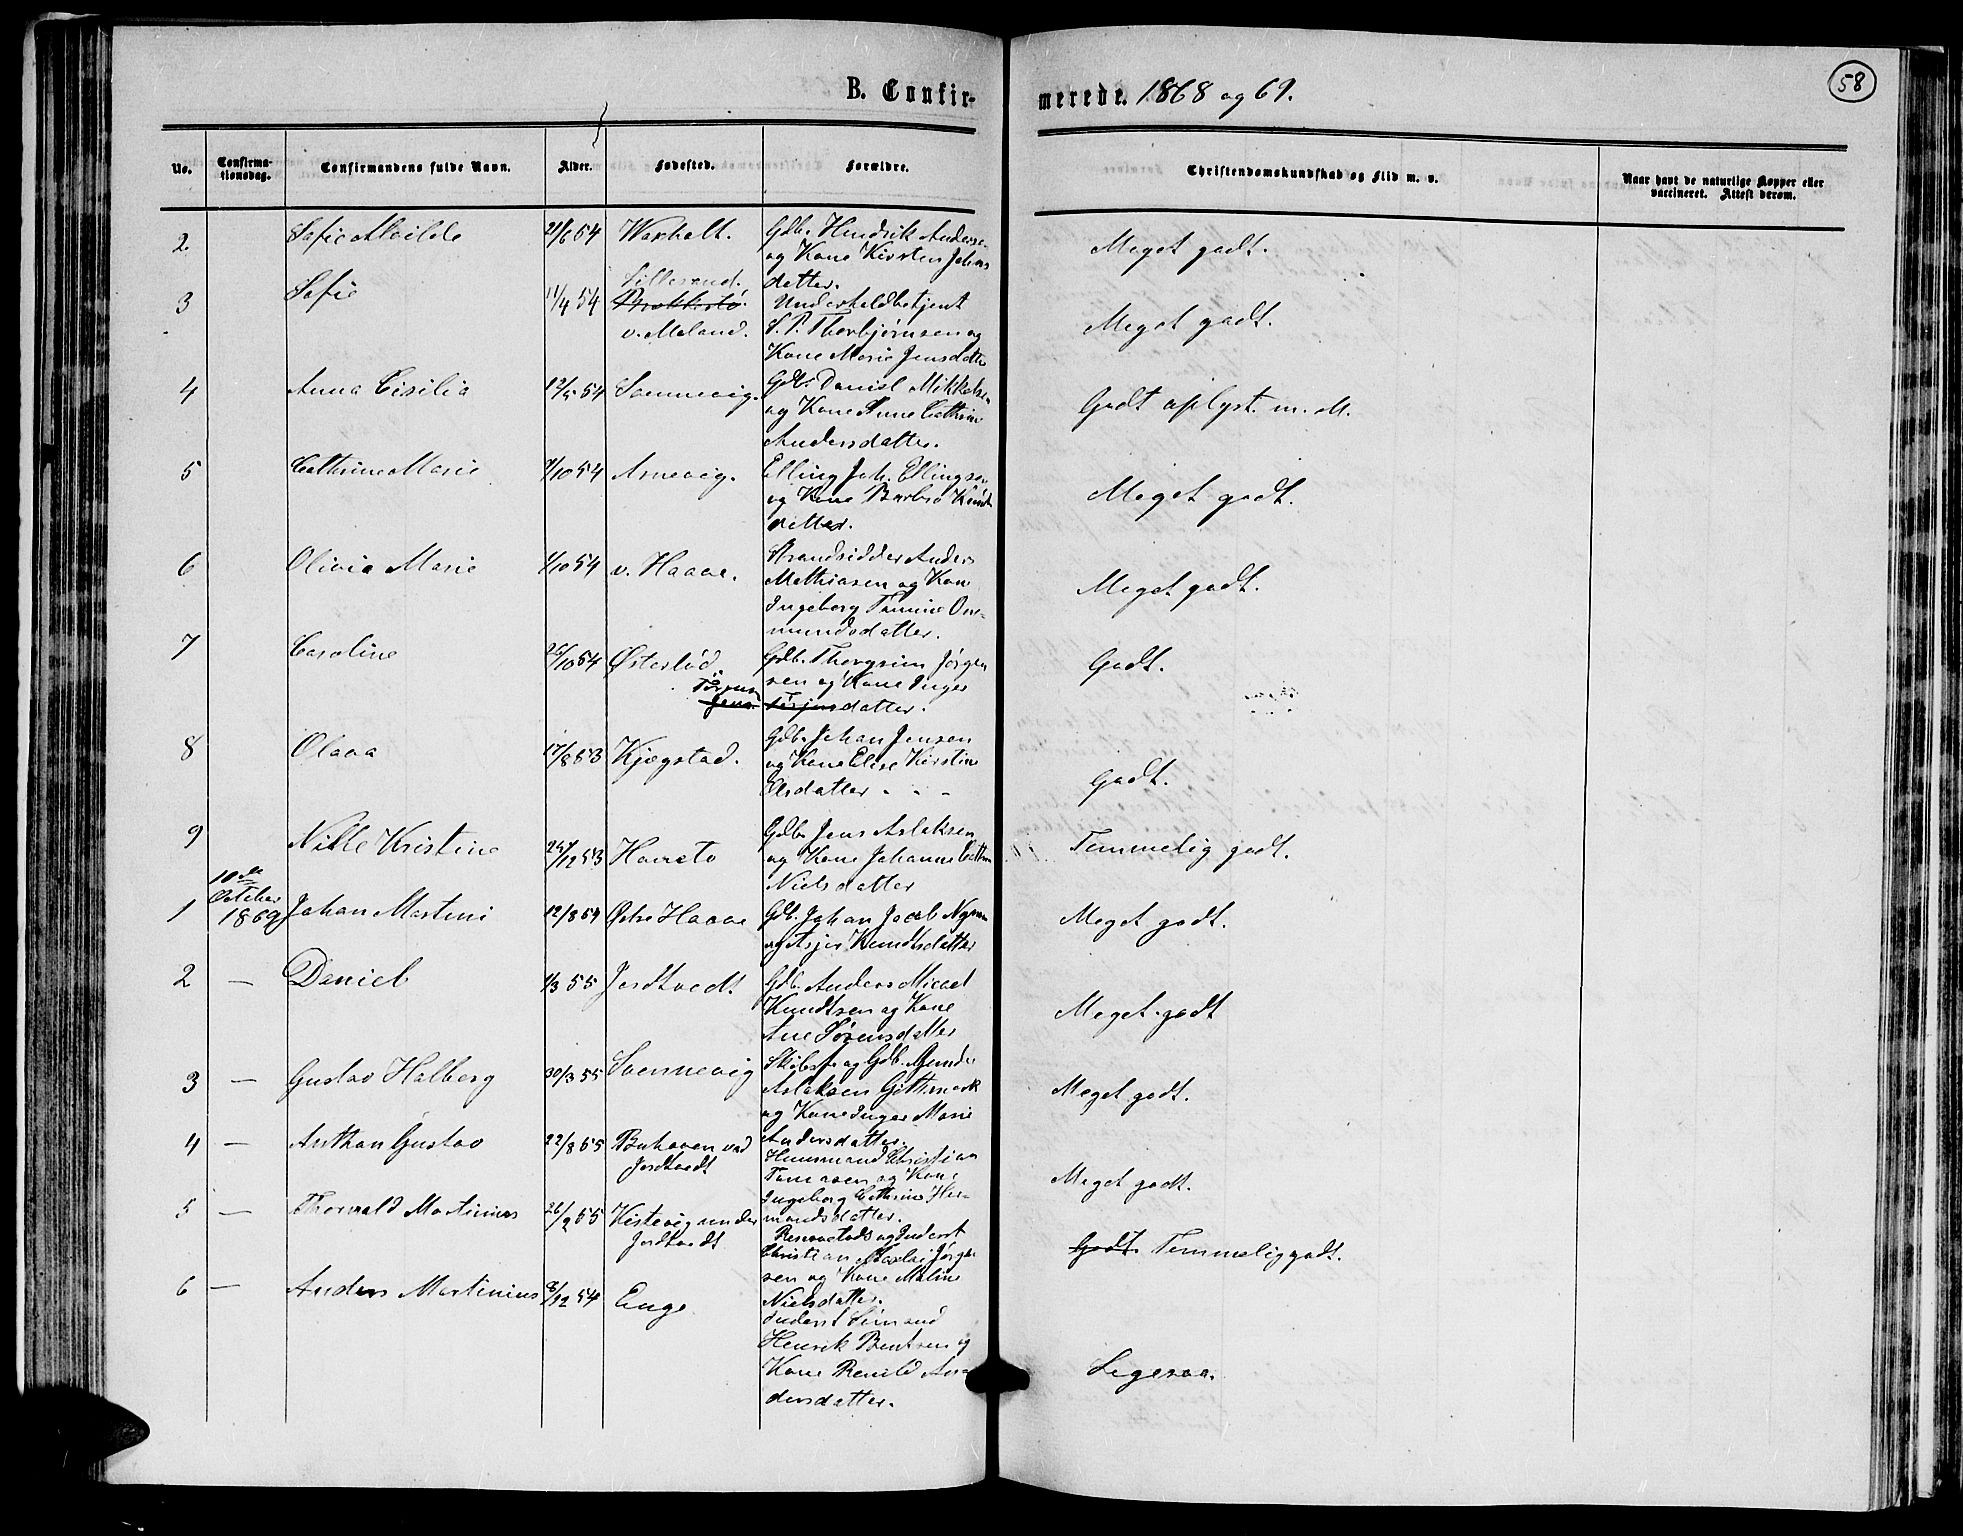 B. Confir- merede. 1868 og 69.
58
No. Confirma-tionsdag. Confirmandens fulde Navn. Alder. Fødested. Forældre. Christendomskundskab og Flid m. v. Naar havt de naturlige Kopper eller vaccineret. Attest derom.
2 Safie Alvilde 21/6 54 Waxholt. Gdb. Hendrik Anderse
og Kone Kirsten Johns
datter.
Meget godt.
3 Safie 11/4 54 Lillesund. Brokkestø. v. Moland. Underholdbetjent
S. P. Thorbjørnsen og
Kone Marie Jensdatter
Meget godt.
4 Anna Cisilia 12/5 54 Sømnevig. Gdb. Daniel Mikkelse
og Kone Anne Cathrine
Andersdatter.
Godt oplyst. m. M.
5 Cathrine Marie 9/10 54 Arnevig. Elling Joh. Ellingsen
og Kone Barbro Knuds
datter.
Meget godt.
6 Olivia Marie 1/10 54 v. Haave. Strandsidder Anders
Mathiasen og Kone
Ingeborg Tomine On-
mundsdatter.
Meget godt.
7 Caroline 26/10 54 Østerlød. Gdb. Thorgrim Jørgen
sen og Kone Inger
Tørjens Jens Tørjensdatter.
Godt.
8 Olava 17/8 53 Kjøgstad. Gdb. Johan Jensen
og Kone Elise Kirstine
Olsdatter
Godt.
9 Nille Kristine 24/12 53 Havstø Gdb. Jens Aslaksen
og Kone Johanne Cathrine
Nielsdatter
Temmelig godt.
10de October 1869
1 Johan Martini 12/8 54 Østre Haave Gdb. Johan Jacob Nymann
og Asjer Knudtsdatter
Meget godt.
2 — Daniel 1/3 55 Jordtvedt Gdb. Anders Micael
Knudtsen og Kone
Ane Sørensdatter
Meget godt
3 — Gustav Holberg 30/3 55 Svennevig Skibsf. og Gdb. Gunder
Aslaksen Gittmark
og Kone Inger Marie
Andersdatter.
Meget godt.
4 — Anthon Gustav 22/8 55 Buhaven ved
Jordtvedt Huusmand Christian
Tomasen og Kone
Ingeborg Cathrine Her-
mandsdatter.
Meget godt.
5 — Thorvald Martinius 26/2 55 Kistevig under
Jordtvedt og Inderst
Christian Jørgen
sen og Kone Maline
Nielsdatter.
Godt. Temmelig godt.
6 — Anders Martinius 8/12 54 Enge Inderst Sømand
Henrik Bentsen og
Kone Renild An-
dersdatter.
Ligesaa.